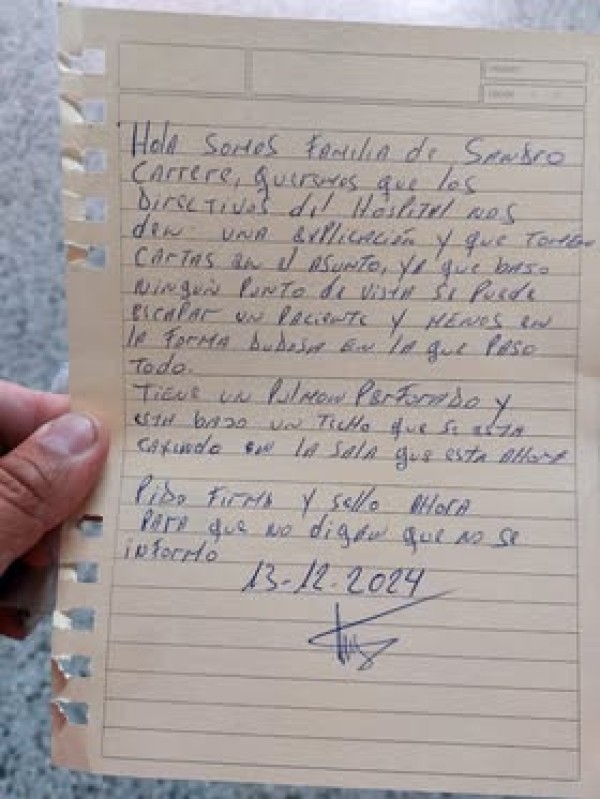 Hola somos familia de Sandro
Carrere, queremos que los
Directivos del Hospital nos
den una explicación y que tomen
cartas en el asunto, ya que bajo
ningún punto de vista se puede
escapar un paciente y menos en
la forma dudosa en la que paso
todo.
Tiene un pulmon perforado y
esta bajo un techo que se esta
cayendo en la sala que esta ahora
Pido firma y sello ahora
para que no digan que no se
informo
13-12-2024